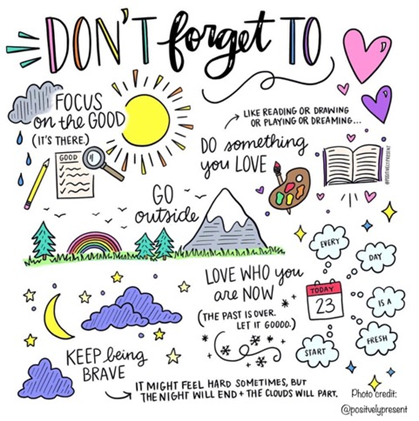 DON'T forget TO
FOCUS
on the GOOD
(IT'S THERE)
GOOD
LIKE READING OR DRAWING
OR PLAYING OR DREAMING...
DO something
you LOVE
@POSITIVELYPRESENT
GO
outside
LOVE WHO you
are NOW
(THE PAST IS OVER.
LET IT GOOOO.)
EVERY
DAY
IS A
FRESH
START
TODAY
23
KEEP being
BRAVE
IT MIGHT FEEL HARD SOMETIMES, BUT
THE NIGHT WILL END + THE CLOUDS WILL PART.
Photo credit:
@positivelypresent